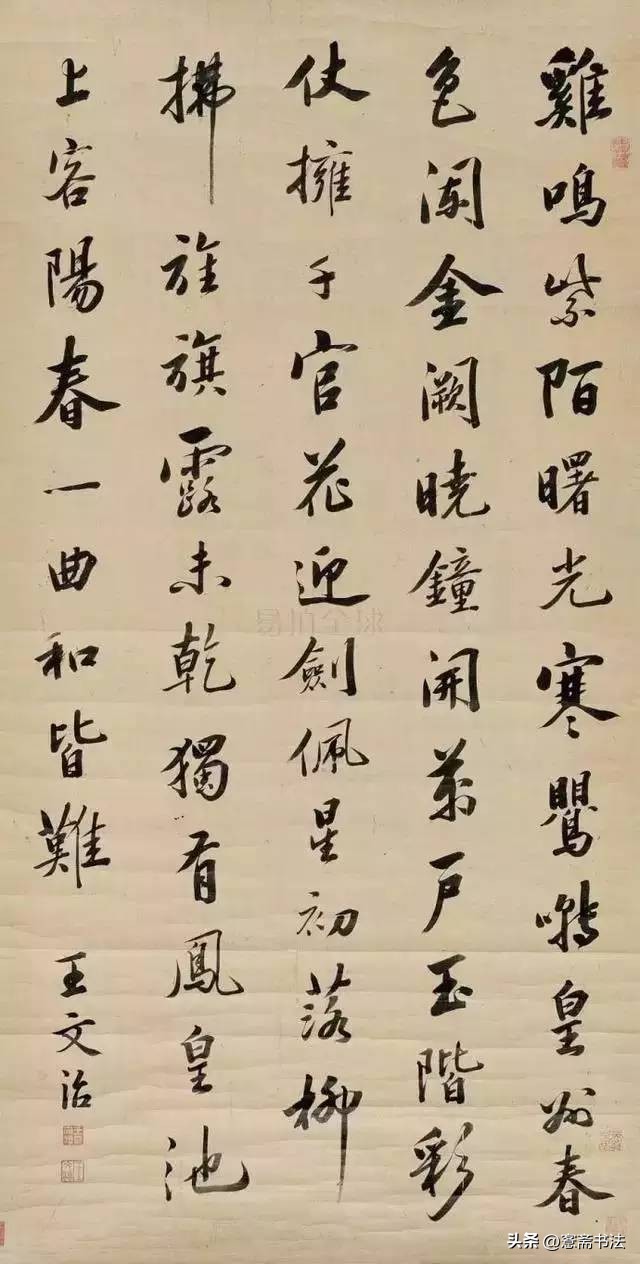 雞鳴紫陌曙光寒鸎囀皇州春
色闌金闕曉鐘開萬戶玉階彩
仗擁千官花迎劍佩星初落柳
拂旌旗露未乾獨有鳳皇池
上客陽春一曲和皆難
王文治
易拍全球
头条 @斋书法